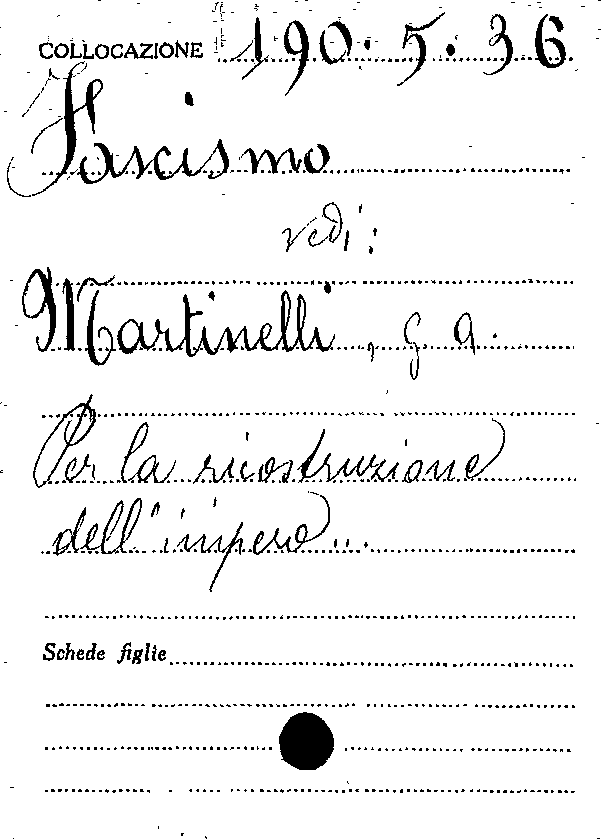 COLLOCAZIONE 190.5.36
Fascismo
vedi:
Martinelli, G. A.
Per la ricostruzione
dell'impero...
Schede figlie